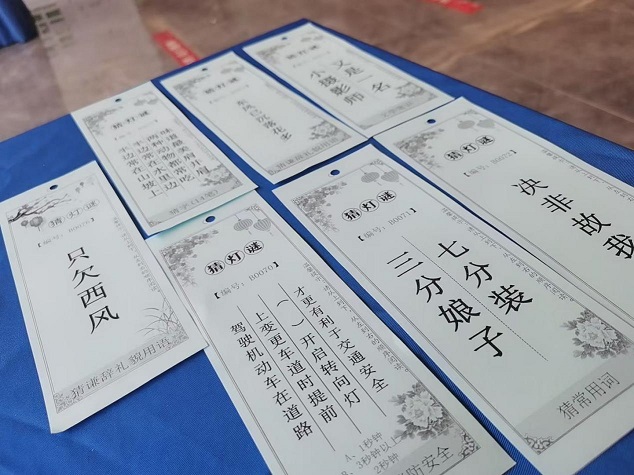 猜灯谜
半边常在山坡上
半边常在水里边
两种动物都常吃
猜灯谜
猜灯谜
小摄影师
又是一名
猜灯谜
只欠西风
猜谦辞礼貌用语
猜灯谜
【编号：B0070】
驾驶机动车在道路
上变更车道时提前
（ ）开启转向灯
才更有利于交通安全
A、1秒钟
B、3秒钟以上
2秒钟
防安全
猜灯谜
三分娘子
七分装
猜灯谜
决非故我
猜常用词